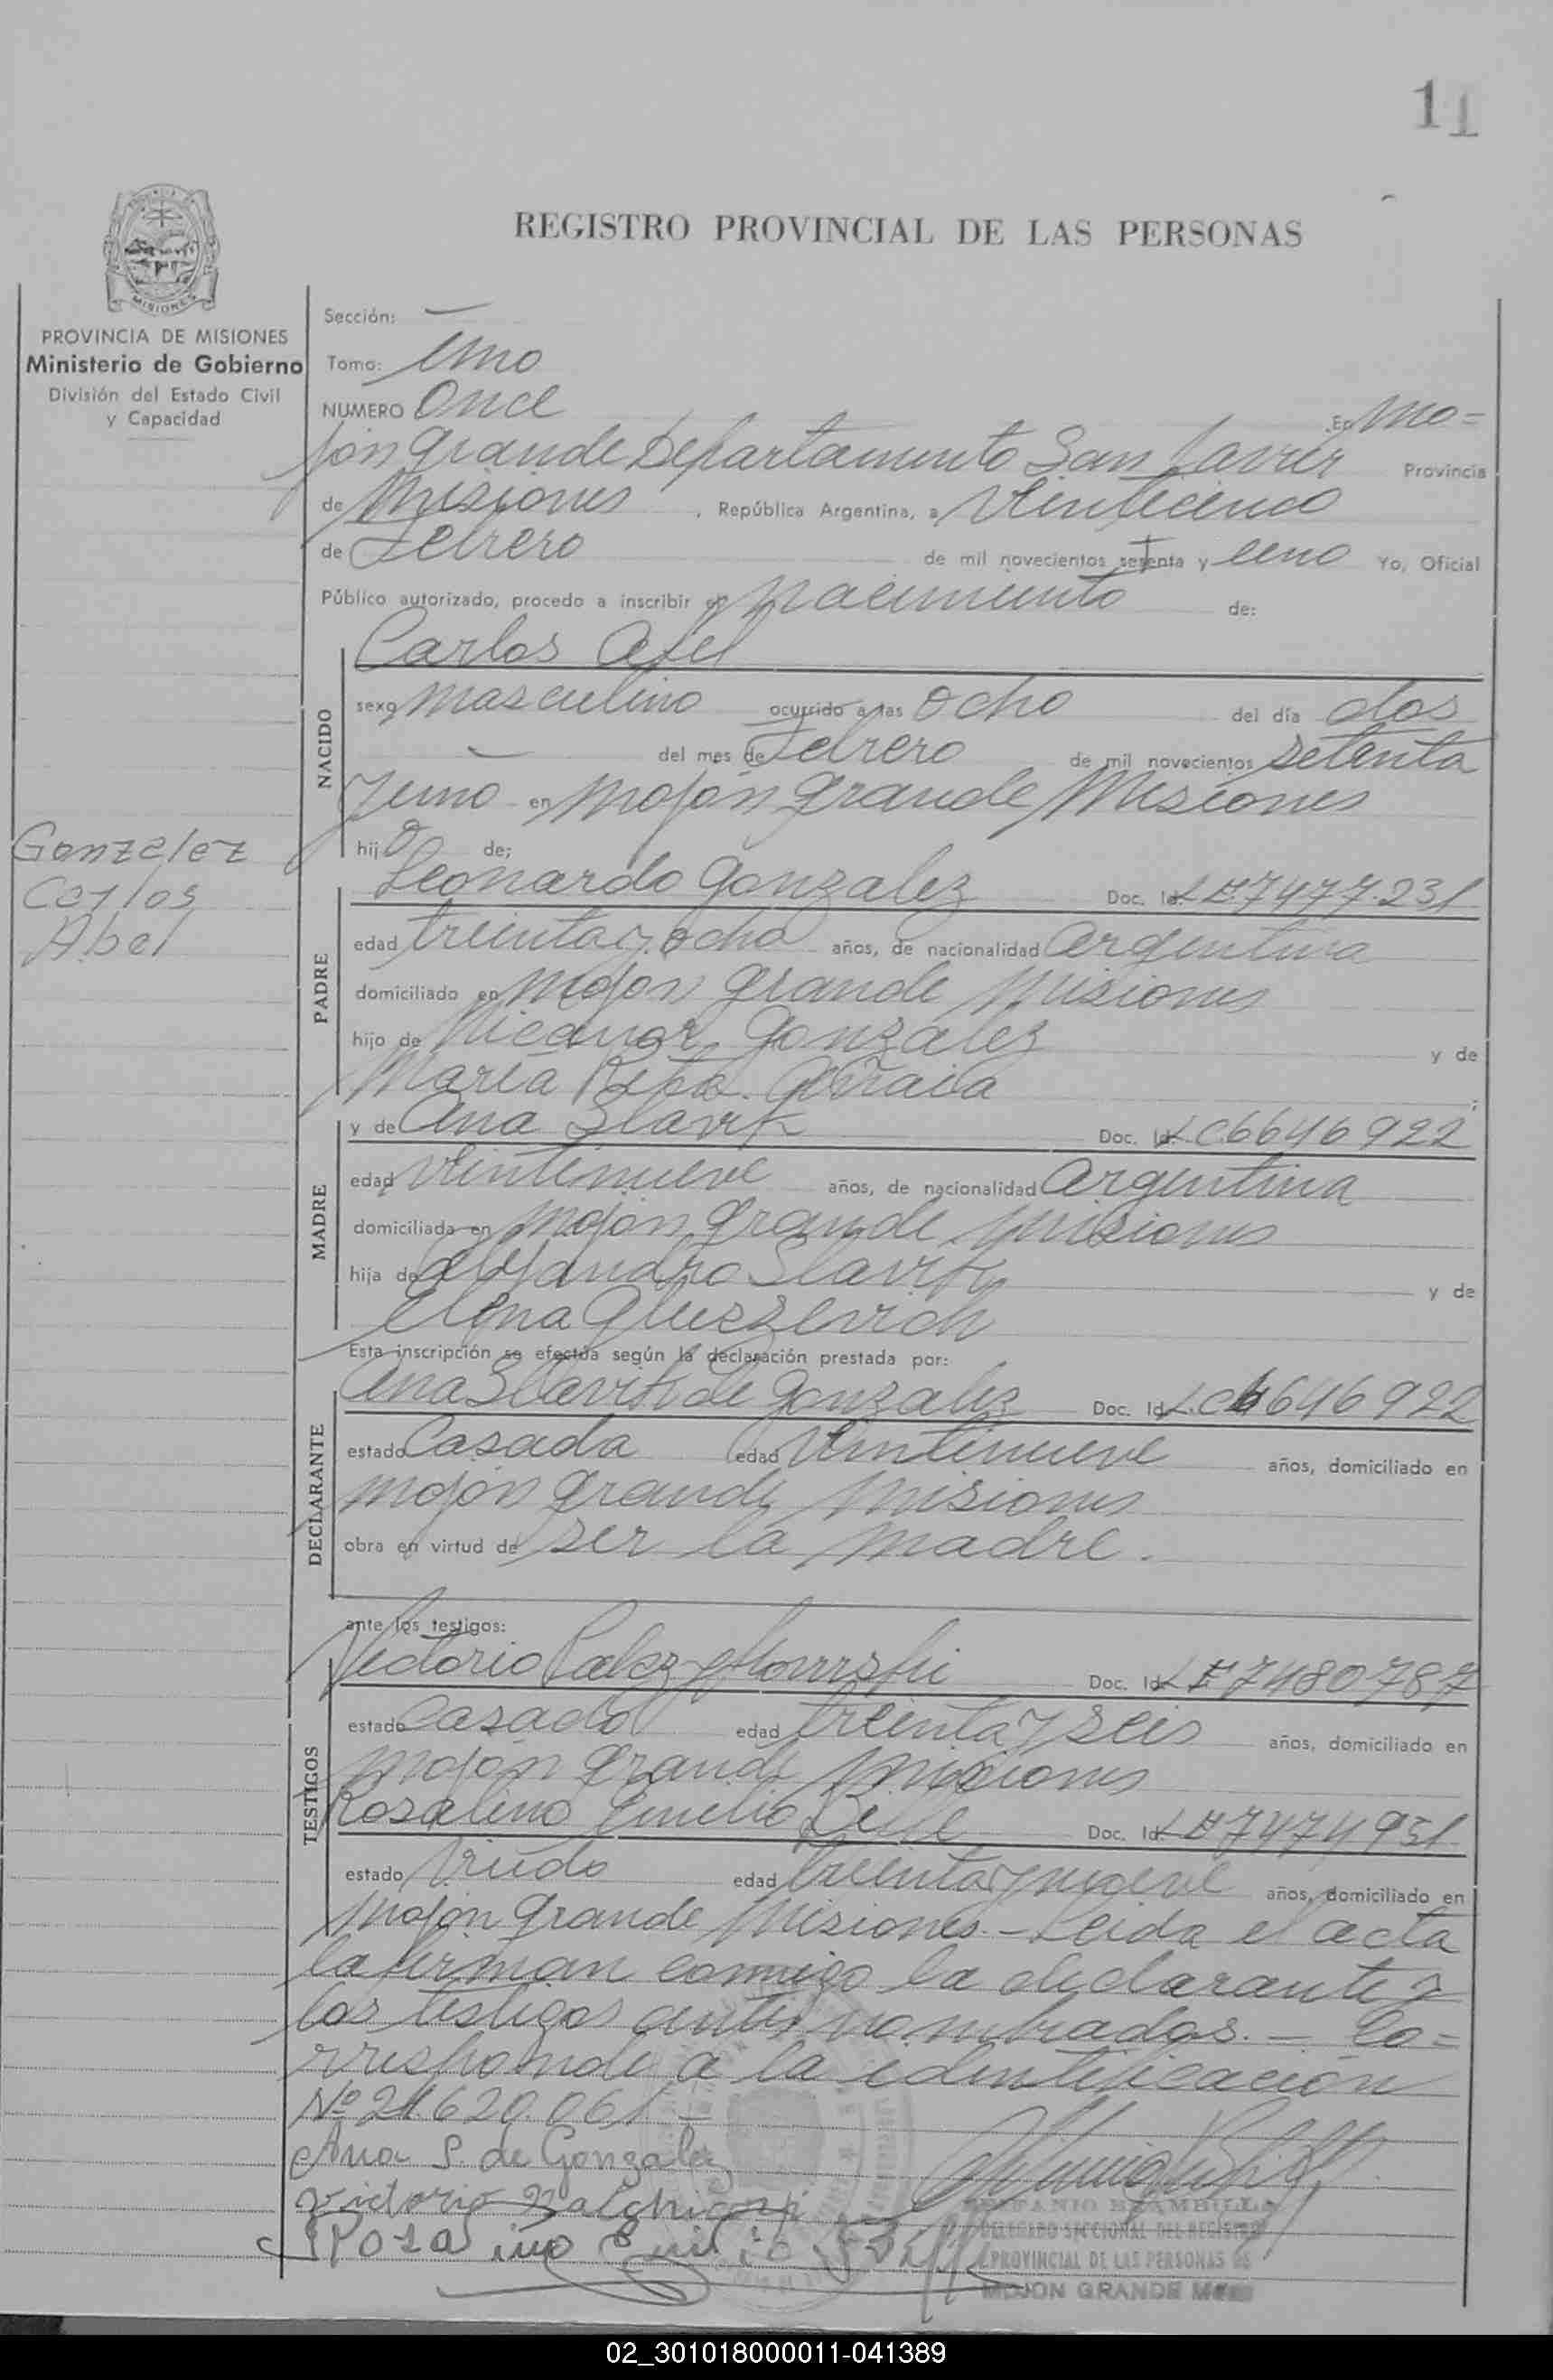 11
REGISTRO PROVINCIAL DE LAS PERSONAS
MISIONES
PROVINCIA DE MISIONES
Ministerio de Gobierno
División del Estado Civil
y Capacidad
Gonzalez
Carlos
Abel
Sección: —
Tomo: Uno
NUMERO Once En Mo=
jón Grande Departamento San Javier Provincia
de Misiones , República Argentina, a Veinticinco
de Febrero de mil novecientos setenta y uno Yo, Oficial
Público autorizado, procedo a inscribir el nacimiento de:
NACIDO
Carlos Abel
sexo masculino ocurrido a las ocho del día dos
— del mes de Febrero de mil novecientos setenta
y uno en Mojón Grande Misiones
hijo de;
PADRE
Leonardo Gonzalez Doc. Id. LE 7477.231
edad treinta y ocho años, de nacionalidad Argentina
domiciliado en Mojón Grande Misiones
hijo de Nicanor Gonzalez y de
María Rita ;
MADRE
y de Ana Slavik Doc. Id. LC 6646922
edad Veintinueve años, de nacionalidad Argentina
domiciliada en Mojón Grande Misiones
hija de Alejandro y de
Elena
Esta inscripción se efectúa según la declaración prestada por:
DECLARANTE
Ana Slavik de Gonzalez Doc. Id. L.C. 6646922
estado Casada edad Veintinueve años, domiciliado en
Mojón Grande Misiones
obra en virtud de ser la madre.
ante los testigos:
TESTIGOS
Victorio Doc. Id. LE 7480787
estado Casado edad treinta y seis años, domiciliado en
Mojón Grande Misiones
Rosalino Emilio Doc. Id. LE 7474951
estado Viudo edad treinta y nueve años, domiciliado en
Mojón Grande Misiones.- Leida el acta
la firman conmigo la declarante y
los testigos antes nombrados. — Co=
rresponde a la identificación
Nº 21.620.061 —
Ana S. de Gonzalez
Victorio
Rosalino Emilio
BRAMBILLA
DELEGADO SECCIONAL DEL REGISTRO
PROVINCIAL DE LAS PERSONAS DE
MOJON GRANDE
02_301018000011-041389